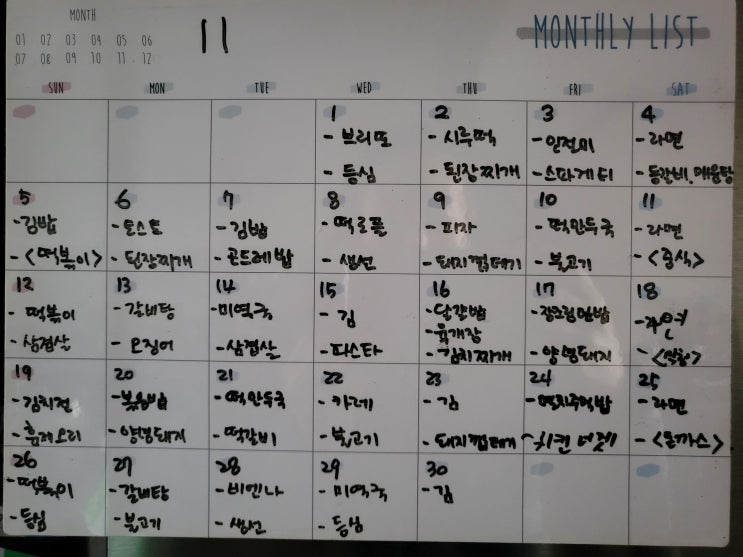 MONTH
11
MONTHLY LIST
01 02 03 04 05 06
07 08 09 10 11 12
SUN MON TUE WED THU FRI SAT
1 2 3 4
- 브리또 - 시루떡 - 인절미 - 라면
- 등심 - 된장찌개 - 스파게티 - 등갈비, 매운탕
5 6 7 8 9 10 11
- 김밥 - 토스트 - 김밥 - 떡로플 - 피자 - 떡만두국 - 라면
- <떡볶이> - 된장찌개 - 곤드레밥 - 생선 - 돼지껍데기 - 불고기 - <중식>
12 13 14 15 16 17 18
- 떡볶이 - 갈비탕 - 미역국 - 김 - 달갈밥 - 장조림만밥
- 육개장
- 삼겹살 - 오징어 - 삼겹살 - 파스타 - 김치찌개 - 양명돼지
19 20 21 22 23 24 25
- 김치전 - 볶음밥 - 떡만두국 - 카레 - 김 - 멸치주먹밥 - 라면
- 훈제오리 - 양명돼지 - 떡갈비 - 불고기 - 돼지껍데기 - 치킨 너겟 - <돈까스>
26 27 28 29 30
- 떡볶이 - 갈비탕 - 비엔나 - 미역국 - 김
- 등심 - 불고기 - 생선 - 등심